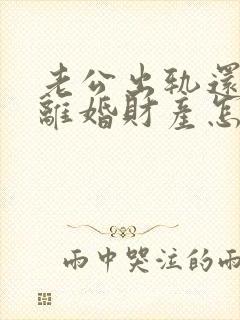 老公出軌還
離婚財產怎
雨中哭泣的雨